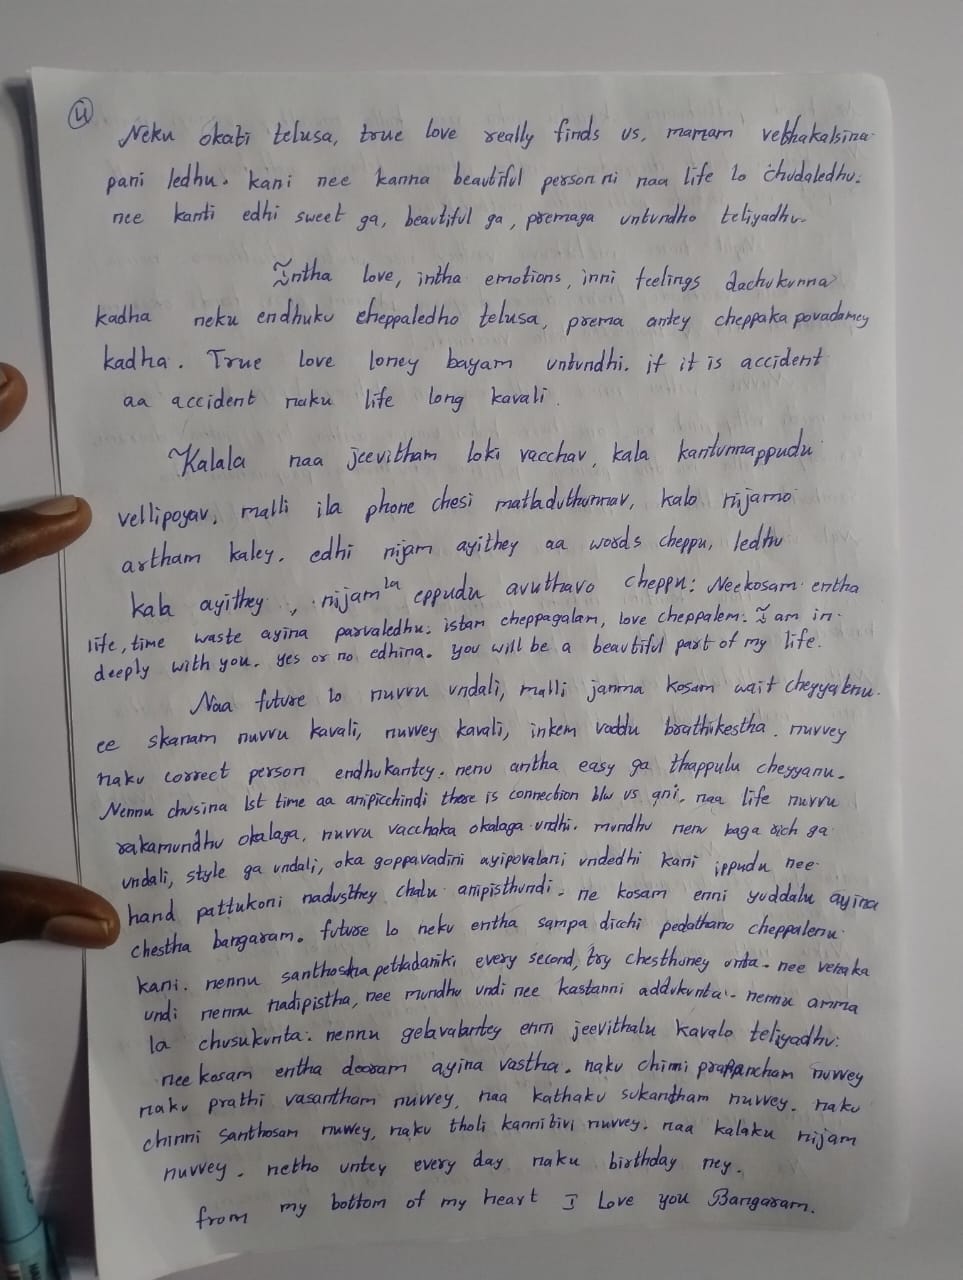 4
Neku okati telusa, true love really finds us. manam vethakalsina
pani ledhu. kani nee kanna beautiful person ni naa life lo chudaledhu.
nee kanti edhi sweet ga, beautiful ga, premaga untundho teliyadhu.
Intha love, intha emotions, inni feelings dachukunna
kadha neku endhuku cheppaledho telusa, prema antey cheppaka povadamey
kadha. True love loney bayam untundhi. if it is accident
aa accident naku life long kavali.
Kalala naa jeevitham loki vacchav, kala kantunnappudu
vellipoyav, malli ila phone chesi matladuthunnav, kalo nijamo
artham kaley. edhi nijam ayithey aa words cheppu, ledhu
kala ayithey, nijam la eppudu avuthavo cheppu. Neekosam entha
life, time waste ayina parvaledhu. istam cheppagalam, love cheppalem. I am in
deeply with you. yes or no edhina. you will be a beautiful part of my life.
Naa future lo nuvvu undali, malli janma kosam wait cheyyalenu.
ee skanam nuvvu kavali, nuvvey kavali, inkem vaddu brathikestha. nuvvey
naku correct person endhukantey. nenu antha easy ga thappulu cheyyanu.
Nennu chusina 1st time aa anipicchindi there is connection b/w us ani, naa life nuvvu
rakamundhu okalaga, nuvvu vacchaka okalaga undhi. mundhu nenu baga rich ga
undali, style ga undali, oka goppavadini ayipovalani undedhi kani ippudu nee
hand pattukoni nadusthey chalu anipisthundi. ne kosam enni yuddalu ayina
chestha bangaram. future lo neku entha sampa dicchi pedathano cheppalenu
kani. nennu santhosha pettadaniki every second, try chesthuney unta. nee venaka
undi nennu nadipistha, nee mundhu undi nee kastanni addukunta. nennu amma
la chusukunta. nennu gelavalantey enni jeevithalu kavalo teliyadhu.
nee kosam entha dooram ayina vastha. naku chinni prapancham nuvvey
naku prathi vasantham nuvvey, naa kathaku sukantham nuvvey. naku
chinni santhosam nuvvey, naku tholi kannibivi nuvvey. naa kalaku nijam
nuvvey. netho untey every day naku birthday ney.
from my bottom of my heart I Love you Bangaram.